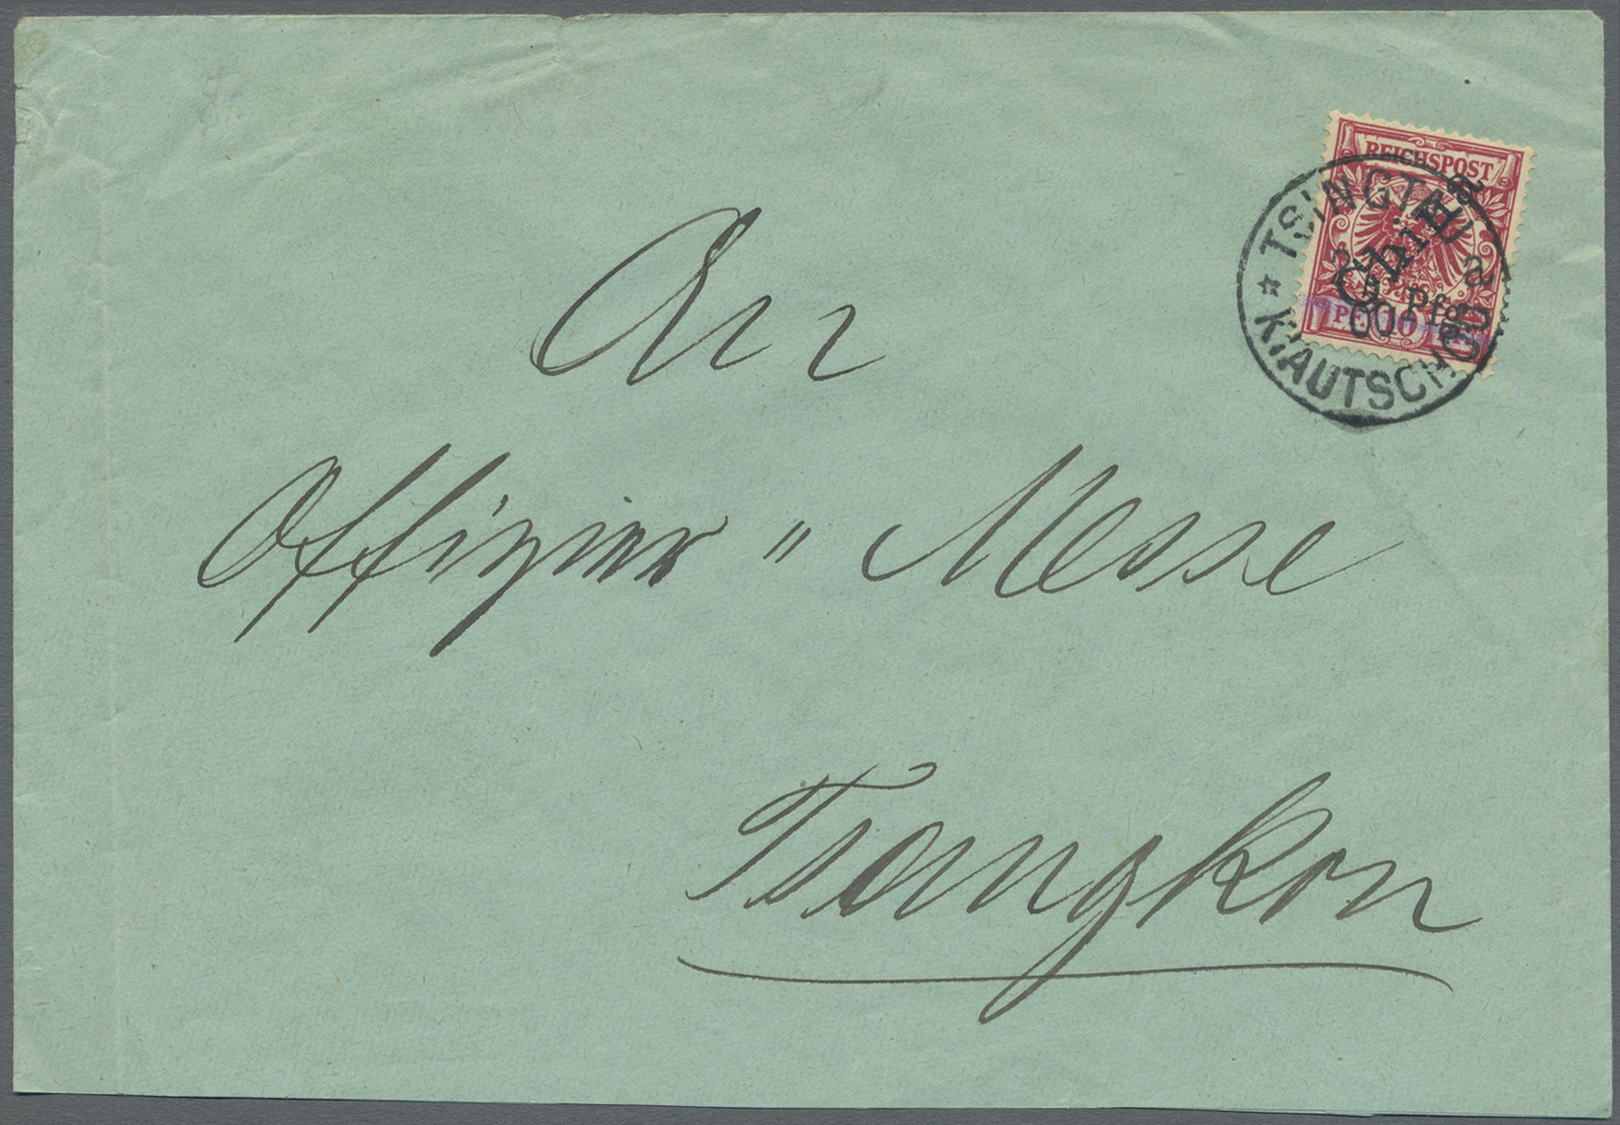 REICHSPOST
China
Pfg.
PF. 10
TSINGTAU
a
KIAUTSCHOU
An
Offizier "Messe
Tsangkou